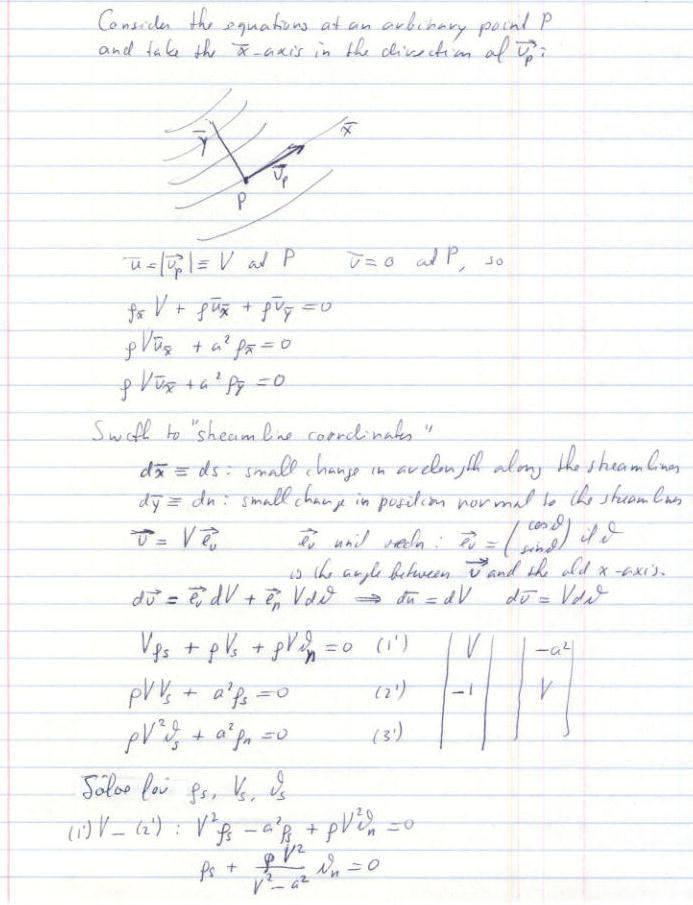 Consider the equations at an arbitrary point P
and take the x̄-axis in the direction of v⃗ₚ:
ȳ
x̄
v⃗ₚ
P
ū = |v⃗ₚ| ≡ V at P    v̄ = 0 at P, so
ρ_x̄ V + ρū_x̄ + ρv̄_ȳ = 0
ρVū_x̄ + a²ρ_x̄ = 0
ρVv̄_x̄ + a²ρ_ȳ = 0
Switch to "streamline coordinates"
dx̄ ≡ ds : small change in arclength along the streamlines
dȳ ≡ dn : small change in position normal to the streamlines
v⃗ = V e⃗ᵥ    e⃗ᵥ unit vector : e⃗ᵥ = (cosϑ sinϑ) if ϑ
is the angle between v⃗ and the old x-axis.
dv⃗ = e⃗ᵥ dV + e⃗ₙ Vdϑ ⟹ dū = dV    dv̄ = Vdϑ
Vρₛ + ρVₛ + ρVϑₙ = 0 (1')    | V |    | -a² |
ρVVₛ + a²ρₛ = 0 (2')    | -1 |    | V |
ρV²ϑₛ + a²ρₙ = 0 (3')
Solve for ρₛ, Vₛ, ϑₛ
(1')V - (2') : V²ρₛ - a²ρₛ + ρV²ϑₙ = 0
ρₛ + ρV²/(V² - a²) ϑₙ = 0